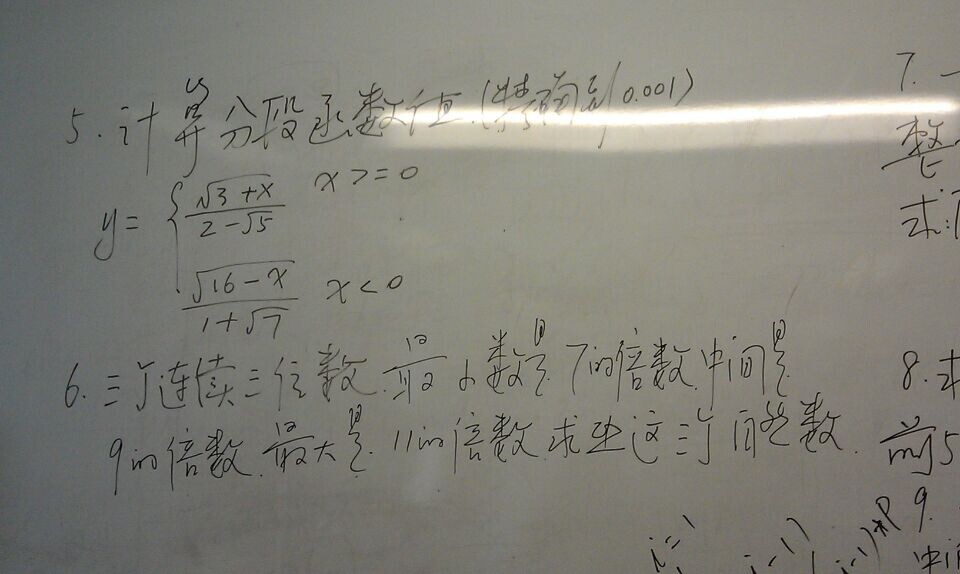 5.计算分段函数值.(精确到0.001)
y= { √(3+x) / (2-√5)  x>=0
√(16-x) / (1+√7)  x<0
6.三个连续三位数.最小数是7的倍数.中间是
9的倍数.最大是.11的倍数.求出这三个数.
7.一
整
求:
8.求
前5
9.
中间
i=1